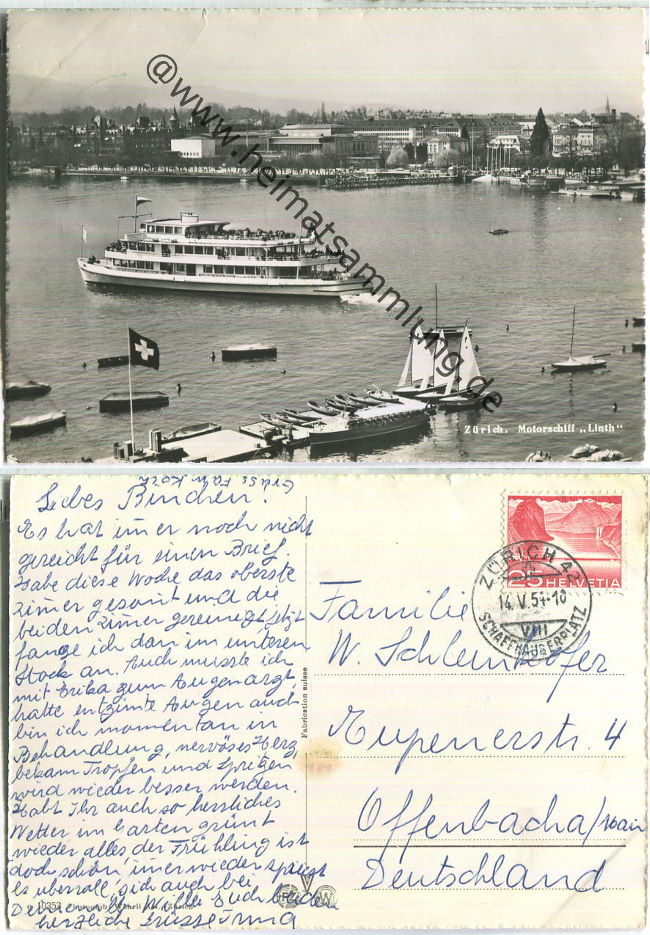 @www.heimatsammlung.de
Zürich. Motorschiff „Linth"
Gruss
Liebes
Es hat imer noch nicht
gereicht für einen Brief.
Habe diese Woche das oberste
Zimer und die
beiden Zimer gereinigt, jetzt
fange ich dan im unteren
Stock an. Auch musste ich
mit Erika zum Augenarzt
hatte entzünte Augen auch
bin ich momentan in
Behandlung, nervöses Herz
bekam Tropfen und Spritzen
wird wieder besser werden.
Habt Ihr auch so herrliches
Wetter im Garten grünt
wieder alles der Frühling ist
doch schön imer wieder
es überall sich auch bei
Euch beiden
herzliche Grüsse Irma
10353
Fabrication suisse
25 HELVETIA
ZÜRICH 42
14.V.54-10
VIII
SCHAFFHAUSERPLATZ
Familie
W. Schleinkofer
Eupenerstr. 4
Offenbach a/Main
Deutschland